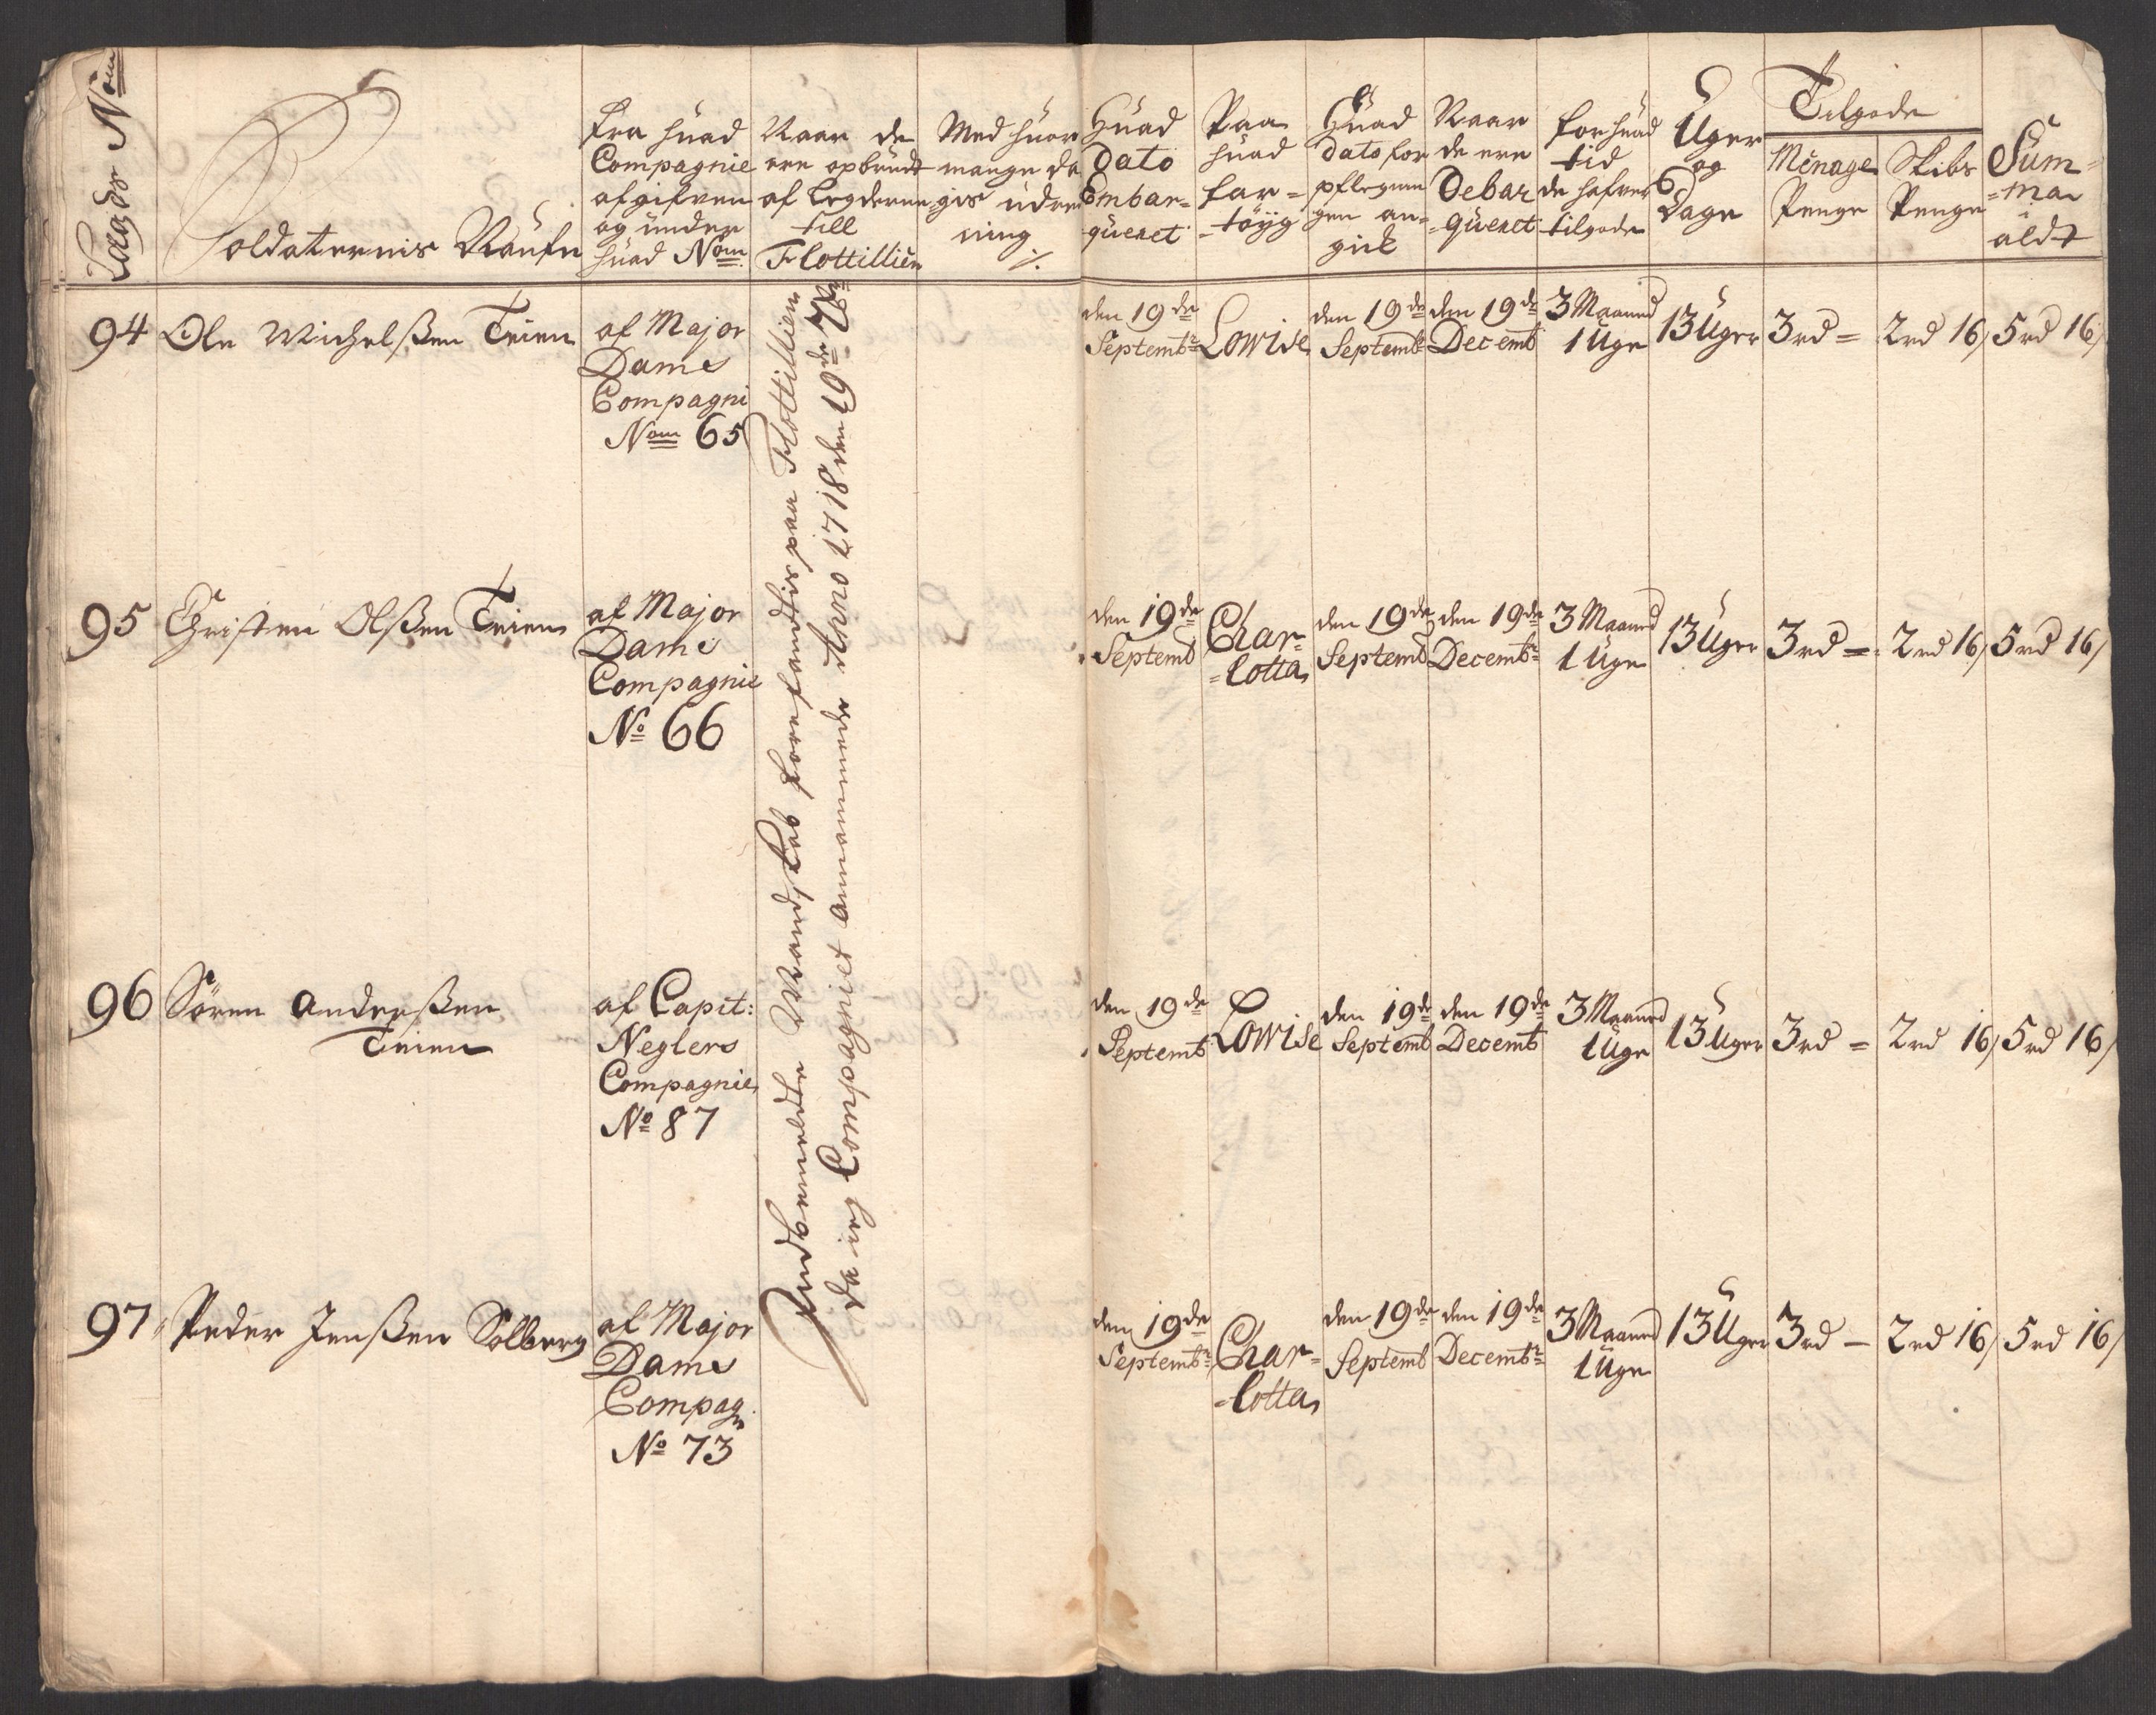 Lægds Nom
Soldaternis Naufn
Fra huad
Compagnie
afgifven
og under
huad Nom
Naar de
ere opbrudt
af Legderne
till
Flottillien
Med huor
mange da
gis udre
ning
Huad
Dato
Embar=
queret
Paa
huad
far=
=töyg
Huad
Dato for
pflegnin
gen an=
gick
Naar
de ere
Debar
=queret
for huad
tid
de hafver
tilgode
Uger
og
6 Dage
Tilgode
Menage
Penge
Skibs
Penge
Sum=
=ma
aldt
94 Ole Michelßen Teien
af Major
Dams
Compagni
Nom 65
den 19de
Septembr
Lowise
den 19de
Septemb
den 19de
Decemb
3 Maaned
1 Uge
13 Uger
3rd =
2rd 16/
5rd 16/
95 Christen Olßen Teien
af Major
Dams
Compagnie
No 66
den 19de
Septemb
Char=
=lotta
den 19de
Septemb
den 19de
Decembr
3 Maaned
1 Uge
13 Uger
3rd =
2rd 16/
5rd 16/
96 Sören Anderßen
Teien
af Capit:
Neglers
Compagnie
No 87
den 19de
Septemb
Lowise
den 19de
Septemb
den 19de
Decemb
3 Maaned
1 Uge
13 Uger
3rd =
2rd 16/
5rd 16/
97 Peder Jenßen Solberg
af Major
Dams
Compag
No 73
den 19de
Septembr
Char=
=lotta
den 19de
Septemb
den 19de
Decembr
3 Maaned
1 Uge
13 Uger
3rd =
2rd 16/
5rd 16/
Indbemeldte Mandskab forefandtis paa Flottillien
da ieg Compagniet annammede Anno 1718 den 19de 7br